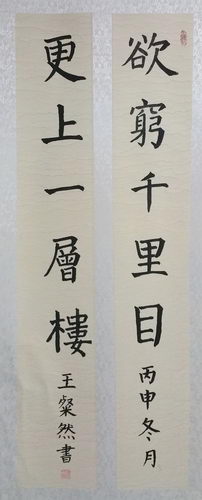 欲窮千里目
丙申冬月
更上一層樓
王粲然書